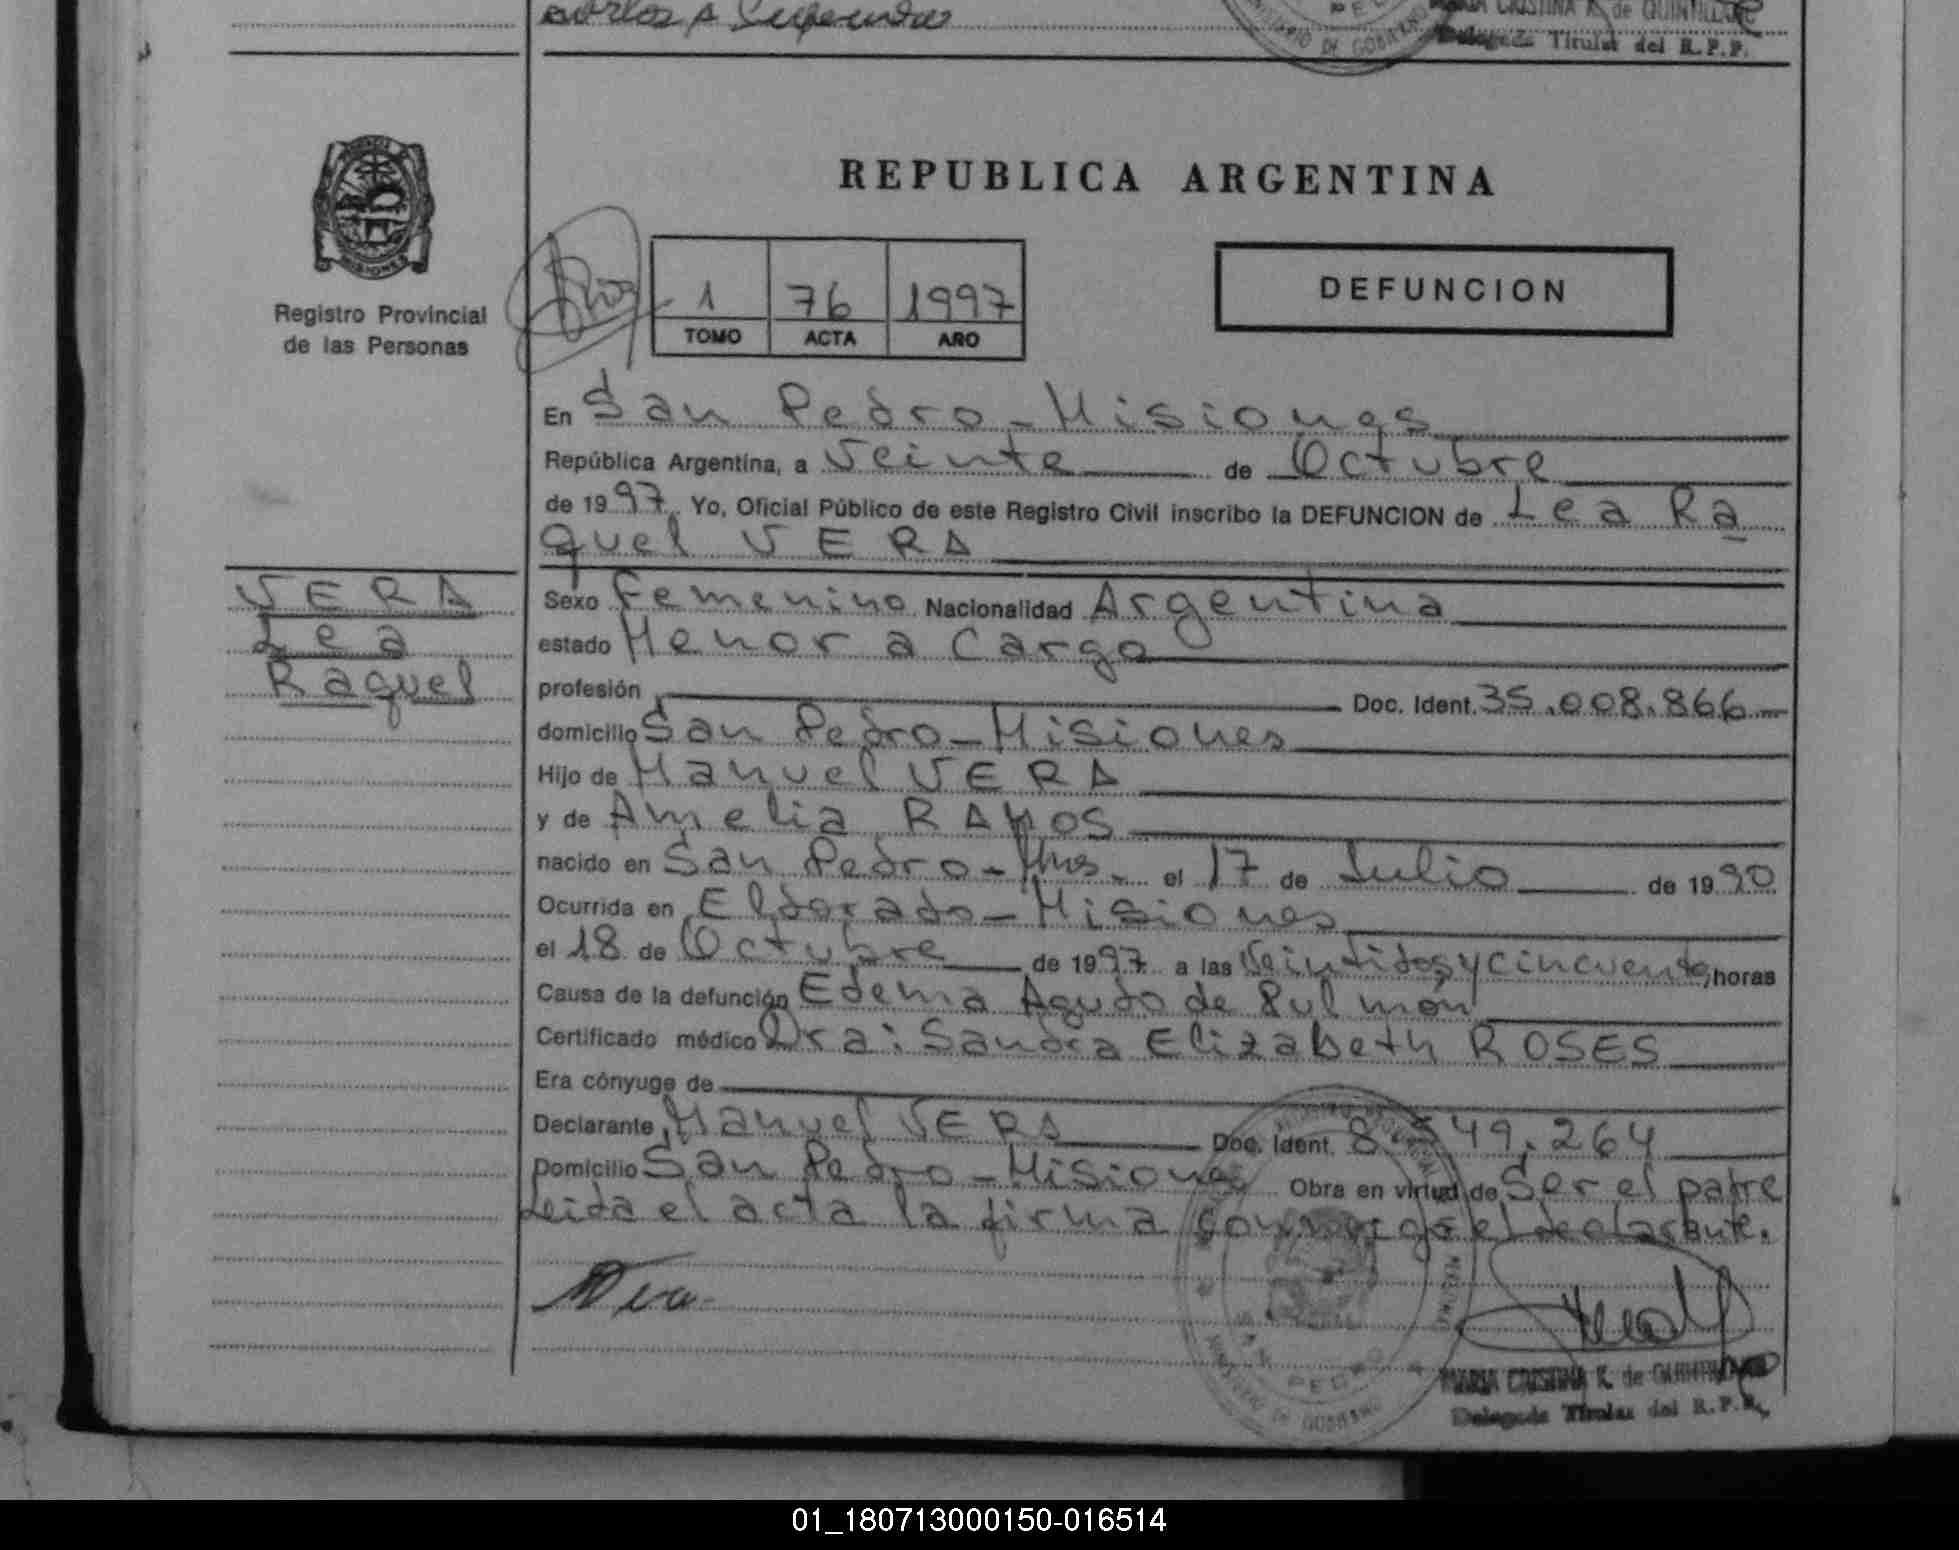 Delegada Titular del R.P.P.
MISIONES
Registro Provincial
de las Personas
REPUBLICA ARGENTINA
1 76 1997
TOMO ACTA AÑO
DEFUNCION
En San Pedro - Misiones
República Argentina, a Veinte de Octubre
de 1997. Yo, Oficial Público de este Registro Civil inscribo la DEFUNCION de Lea Ra
quel VERA
VERA
Lea
Raquel
Sexo Femenino Nacionalidad Argentina
estado Menor a cargo
profesión Doc. Ident. 35.008.866
domicilio San Pedro - Misiones
Hijo de Manuel VERA
y de Amelia RAMOS
nacido en San Pedro - Mnes. el 17 de Julio de 1990
Ocurrida en Eldorado - Misiones
el 18 de Octubre de 1997 a las Veintidos y cincuenta, horas
Causa de la defunción Edema Agudo de Pulmón
Certificado médico Dra: Sandra Elizabeth ROSES
Era cónyuge de
Declarante Manuel VERA Doc. Ident. 8.549.264
Domicilio San Pedro - Misiones Obra en virtud de Ser el padre
Leida el acta la firma conmigo el declarante.
Vera
SAN PEDRO
MINISTERIO DE GOBIERNO
MARIA CRISTINA K. de
Delegada Titular del R.P.P.
01_180713000150-016514